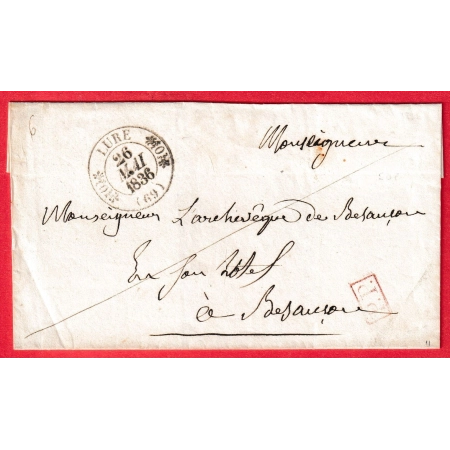 6
LURE
26
MAI
1836
(69)
Monseigneur
Monseigneur L'archevêque de Besançon
En son hôtel
à Besançon